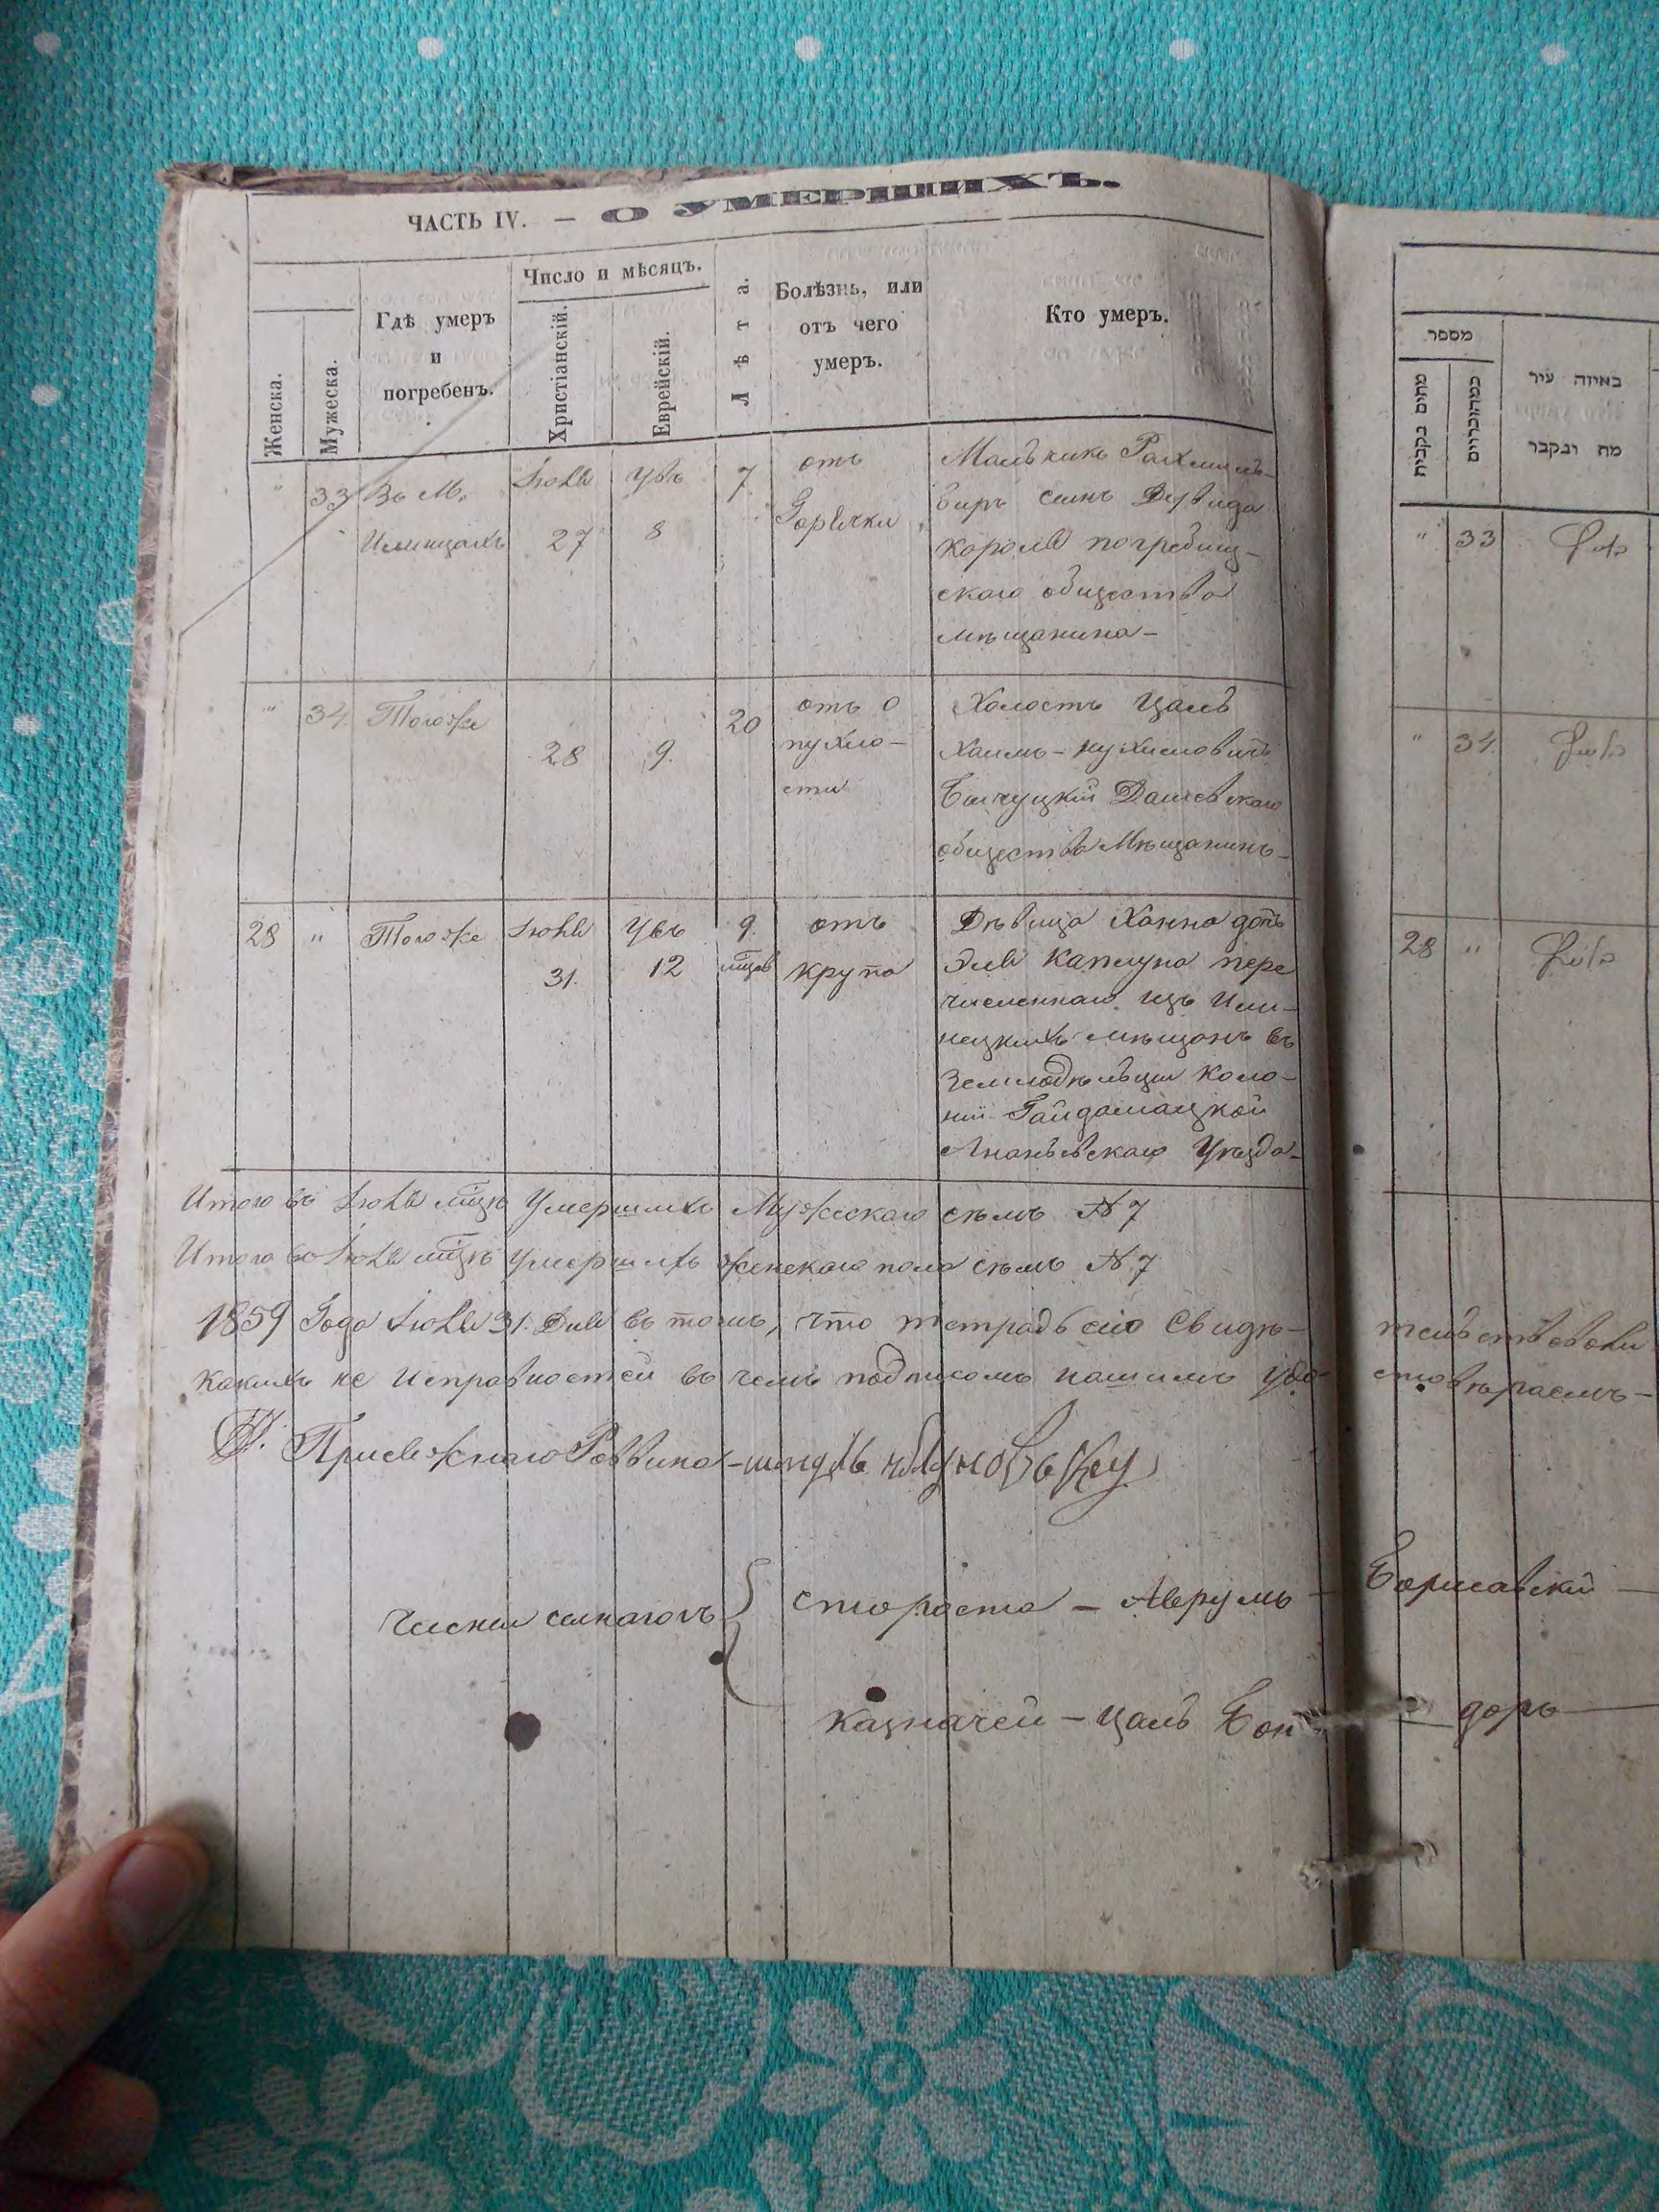 ЧАСТЬ IV. — О УМЕРШИХЪ.
Женска.
Мужеска.
Гдѣ умеръ
и
погребенъ.
Число и мѣсяцъ.
Христіанскій.
Еврейскій.
Лѣта.
Болѣзнь, или
отъ чего
умеръ.
Кто умеръ.
" 33 Въ М. Іюля 7 отъ Мальчикъ Рахмиль
Илинцахъ 27 8 Горячки
беръ сынъ Дувида
короля погребищ-
скаго общества
мѣщанина—
" 34 Тогоже 28 9. 20 отъ о
пухло-
сти
Холостъ Цаль
Хаимъ-Нухимовичъ
Дашевскаго
общества Мѣщанинъ—
28 " Тогоже Іюля 31. 12 9. мѣцев отъ
крупа
Дѣвица Ханна дочь
Эля Каплуна пере
численнаго изъ Или-
нецкихъ мѣщанъ въ
Земледѣльцы Коло-
ніи Гайдамацкой
Ананьевскаго Уезда—
Итого въ Іюлѣ мцѣ Умершихъ Мужескаго сѣмъ № 7
Итого въ Іюлѣ мцѣ Умершихъ женскаго пола сѣмъ № 7
1859 Года Іюля 31. Дня въ томъ, что тетрадь сію Свидѣ- тельствовали
какихъ не Исправностей въ чемъ подписомъ нашимъ удо- стовѣраемъ—
Присяжнаго Раввина—
Члены синагогъ { староста — Аврумъ — Бориславскій —
казначей — Цаль Бон дарь
מספר
מתים בקבית
במהזכרים
באיזה עיר
מת ונקבר
" 33
" 34
28 "